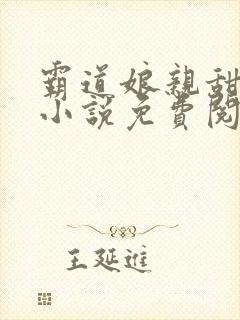 霸道娘親甜
小說免費閱
王延進